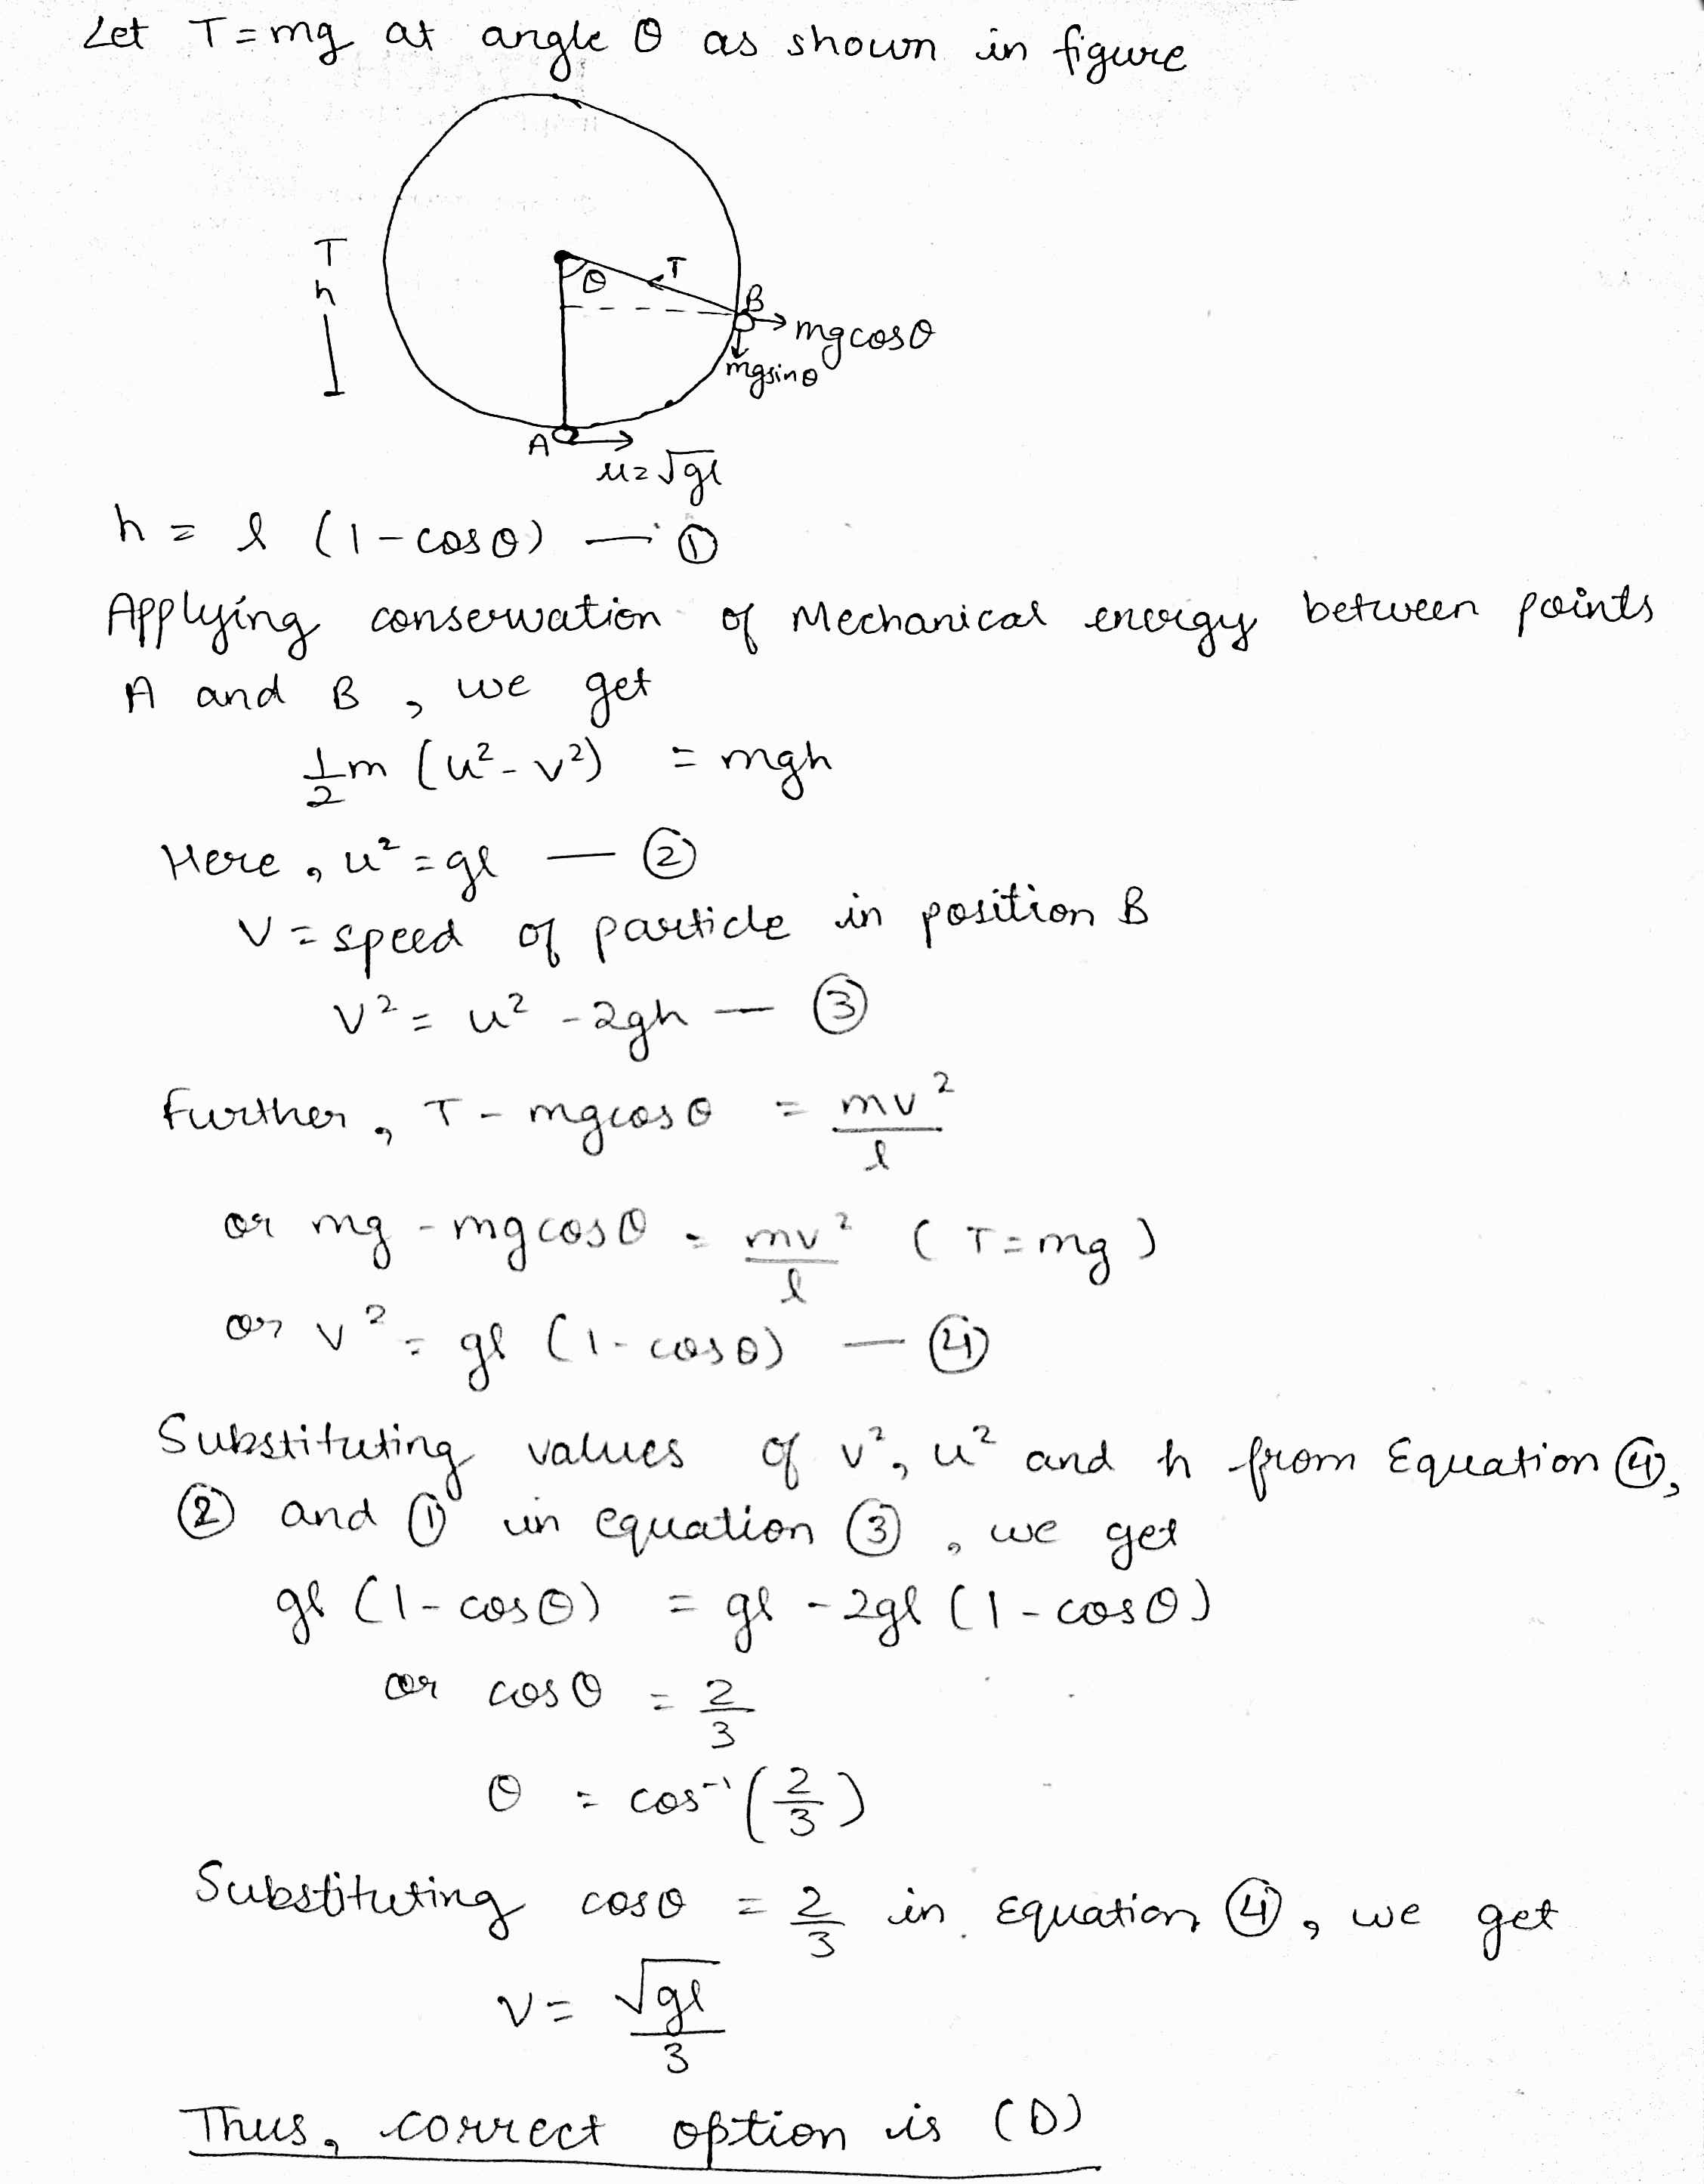 Let T = mg at angle θ as shown in figure
T
h
θ
T
B
mg cosθ
mgsinθ
A
u = √gl
h = l (1-cosθ) — ①
Applying conservation of Mechanical energy between points
A and B , we get
1/2 m (u² - v²) = mgh
Here , u² = gl — ②
V = speed of particle in position B
V² = u² - 2gh — ③
Further , T - mgcosθ = mv²/l
or mg - mgcosθ = mv²/l ( T = mg )
or v² = gl (1 - cosθ) — ④
Substituting values of v², u² and h from Equation ④,
② and ① in equation ③ , we get
gl (1 - cosθ) = gl - 2gl (1 - cosθ)
or cosθ = 2/3
θ = cos⁻¹ (2/3)
Substituting cosθ = 2/3 in Equation ④ , we get
V = √gl/3
Thus, correct option is (D)